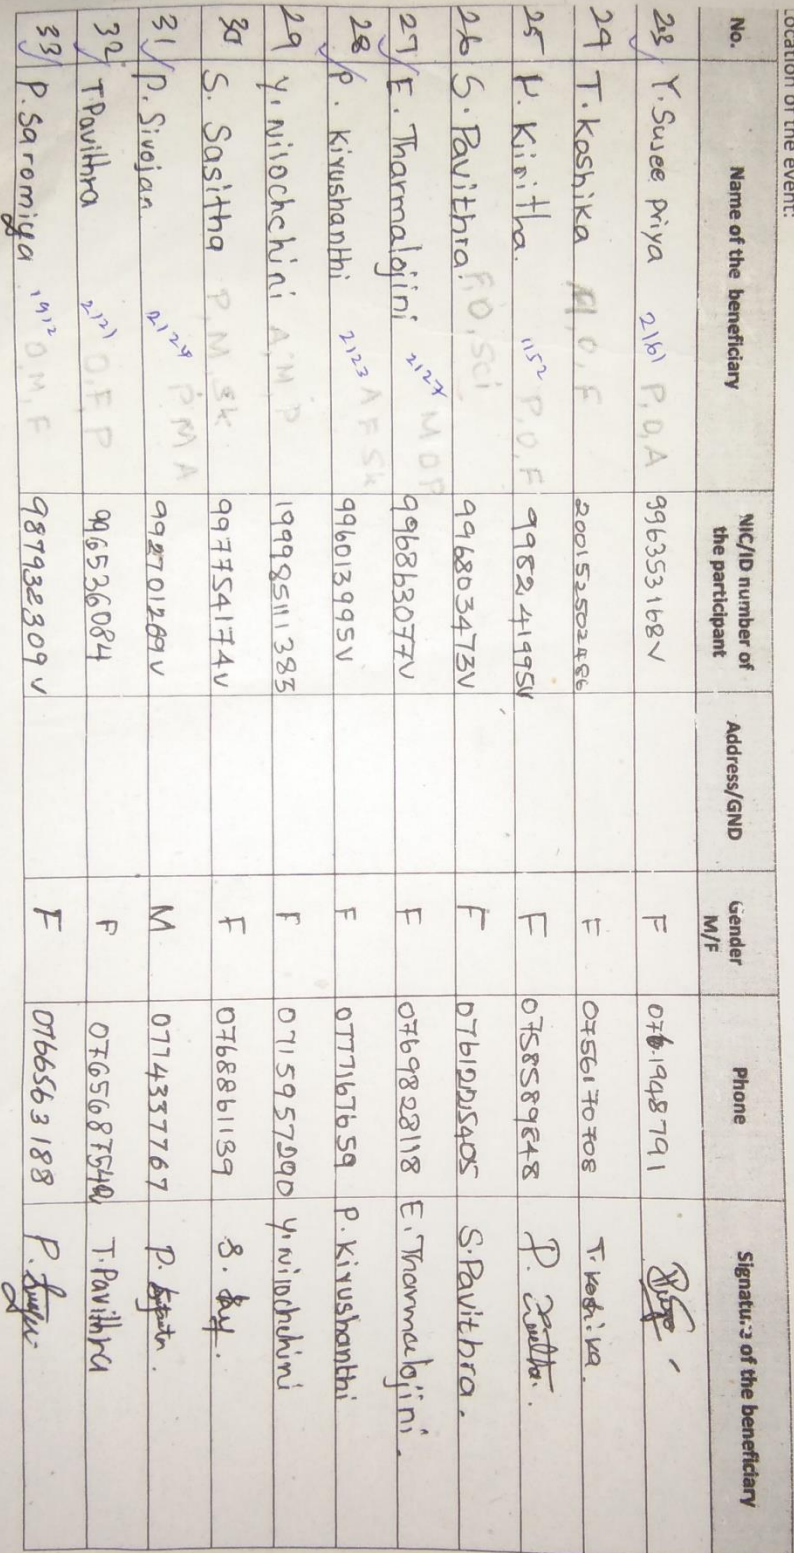 Location of the event:
No. Name of the beneficiary NIC/ID number of the participant Address/GND Gender M/F Phone Signature of the beneficiary
23 Y. Susee Priya 2161 P, O, A 996353168V F 0761948791
24 T. Koshika M, O, F 200152502486 F 0756170708 T. Koshika.
25 P. Kiritha. 1152 P, O, F 998241995V F 0758589848 P.
26 S. Pavithra. F, O, Sci 996803473V F 0761225405 S. Pavithra.
27 E. Tharmalojini 2127 M O P 996863077V F 0769828118 E. Tharmalojini.
28 P. Kirushanthi 2123 A F Sk 996013995V F 0777167659 P. Kirushanthi
29 Y. Nilochchini A, M, P 199985111383 F 0715957290 Y. Nilochchini
30 S. Sasitha P, M, Sk 997754174V F 0768861139 S.
31 P. Sivojan 2124 P M A 992701289V M 0774337767 P.
32 T. Pavithra 2121 O, F, P 996536084 F 0765687549 T. Pavithra
33 P. Saromiya 1912 O, M, F 987932309V F 0766563188 P.